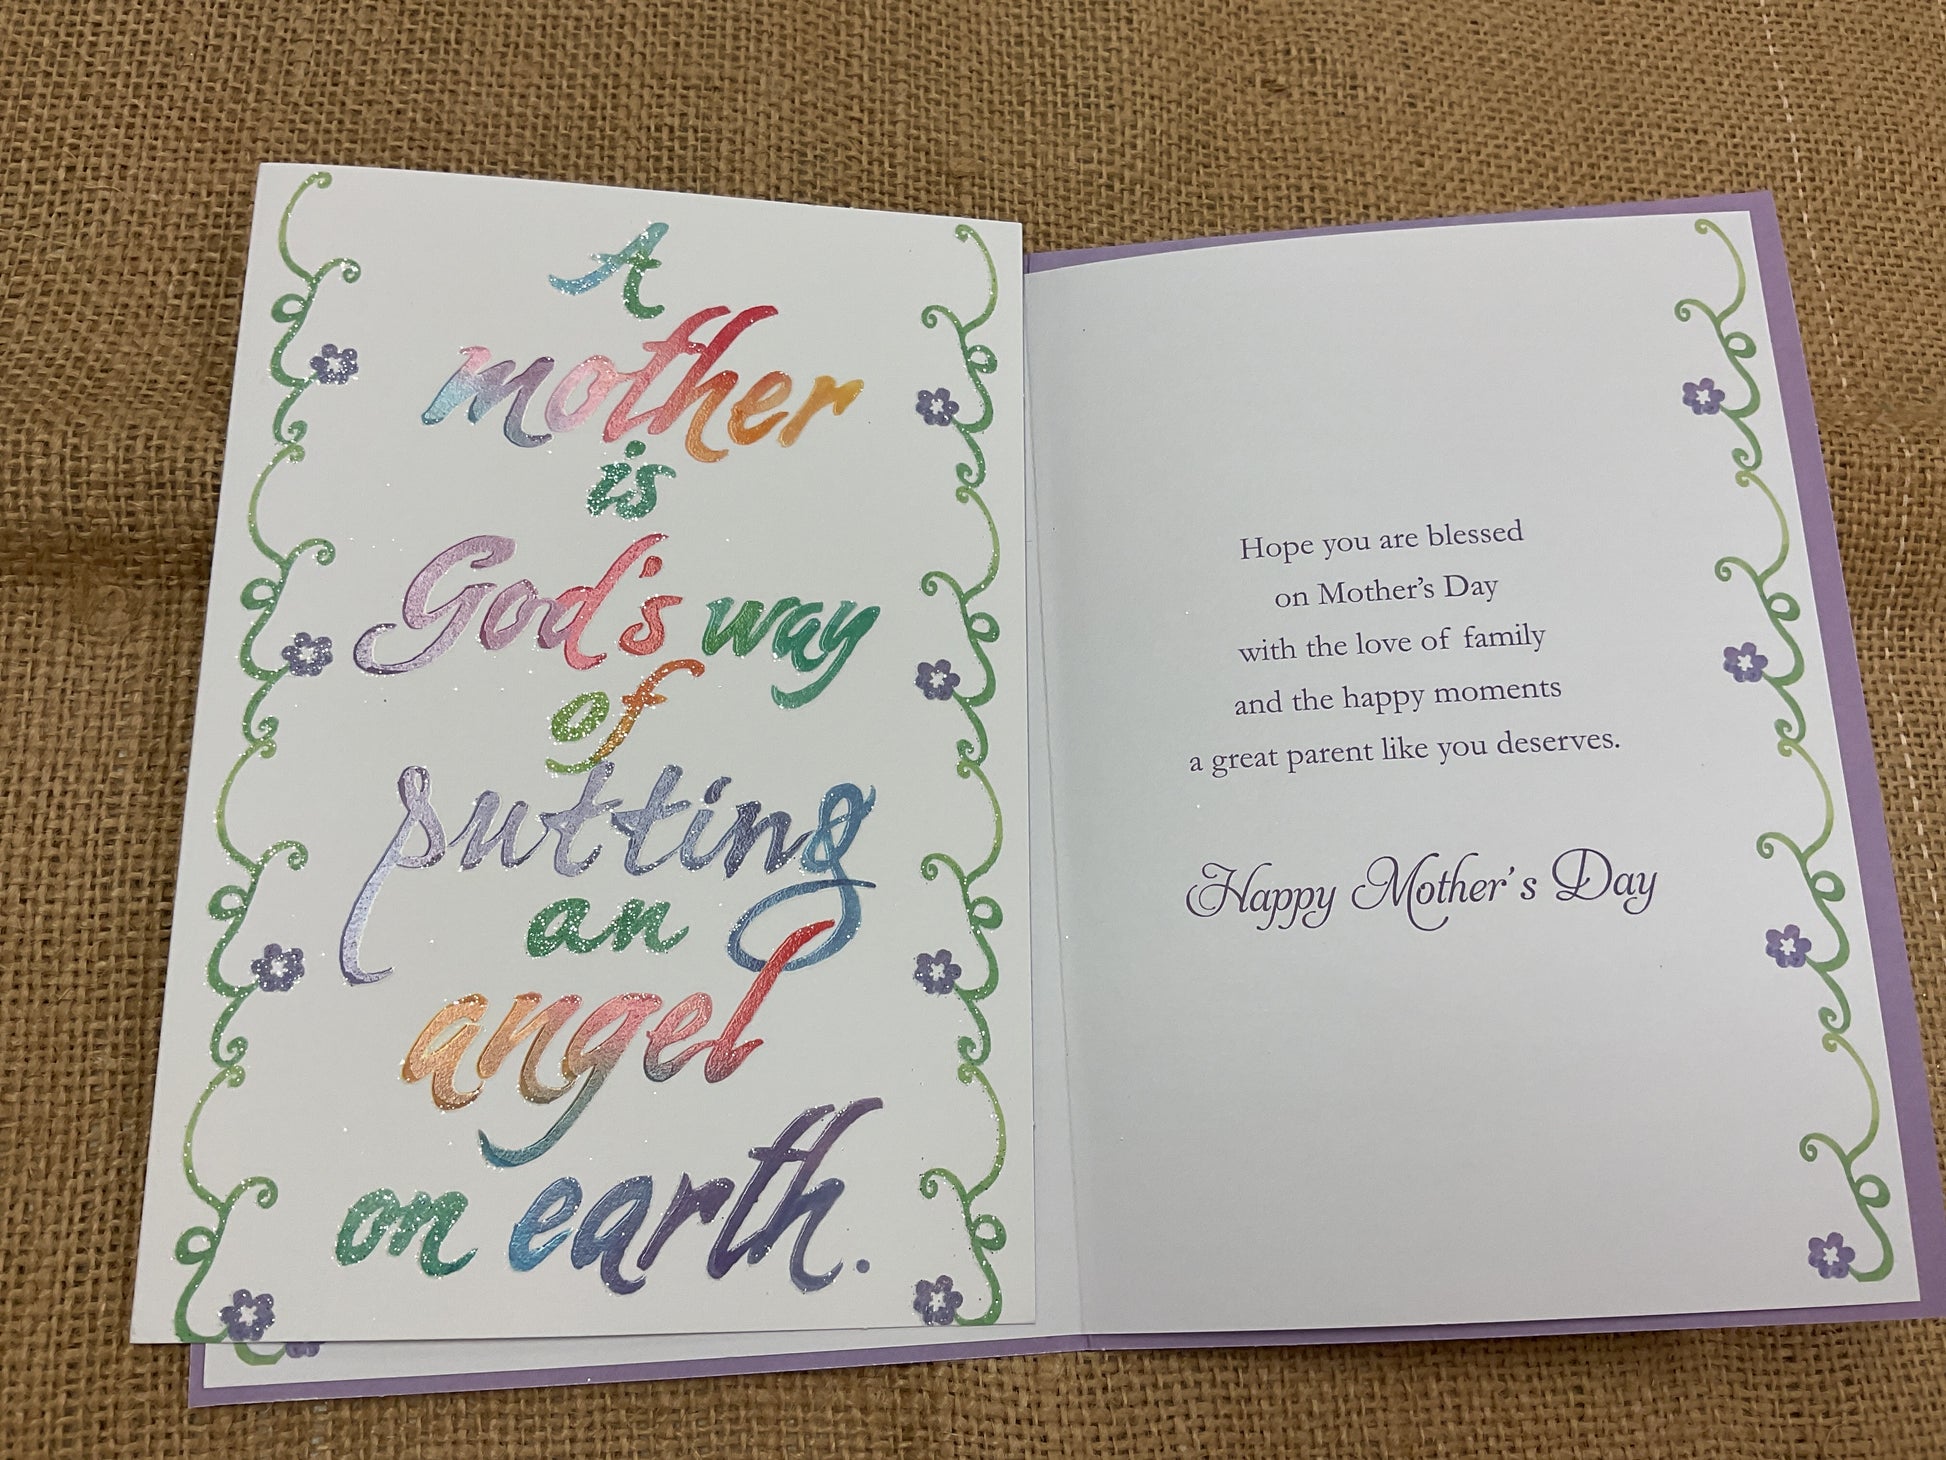 A
mother
is
God's way
of
putting
an
angel
on earth.
Hope you are blessed
on Mother's Day
with the love of family
and the happy moments
a great parent like you deserves.
Happy Mother's Day